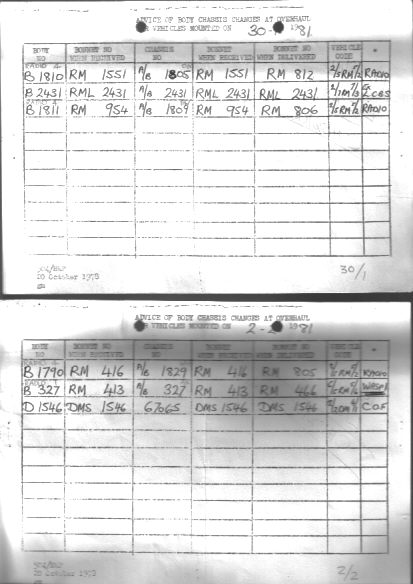 ADVICE OF BODY CHASSIS CHANGES AT OVERHAUL
R VEHICLES MOUNTED ON 30- 1981
BODY NO BONNET NO WHEN RECEIVED CHASSIS NO BONNET WHEN RECEIVED BONNET NO WHEN DELIVERED VEHICLE CODE *
RADIO 4
B 1810 RM 1551 A/B 1805 RM 1551 RM 812 RADIO
B 2431 RML 2431 A/B 2431 RML 2431 RML 2431 CBS
B 1811 RM 954 A/B 1809 RM 954 RM 806 RADIO
20 October 1978
30/1
ADVICE OF BODY CHASSIS CHANGES AT OVERHAUL
R VEHICLES MOUNTED ON 2- 1981
BODY NO BONNET NO WHEN RECEIVED CHASSIS NO BONNET WHEN RECEIVED BONNET NO WHEN DELIVERED VEHICLE CODE *
RADIO 4
B 1790 RM 416 A/B 1829 RM 416 RM 805 RADIO
B 327 RM 413 A/B 327 RM 413 RM 466
D 1546 DMS 1546 67065 DMS 1546 DMS 1546 COF
20 October 1978
2/2